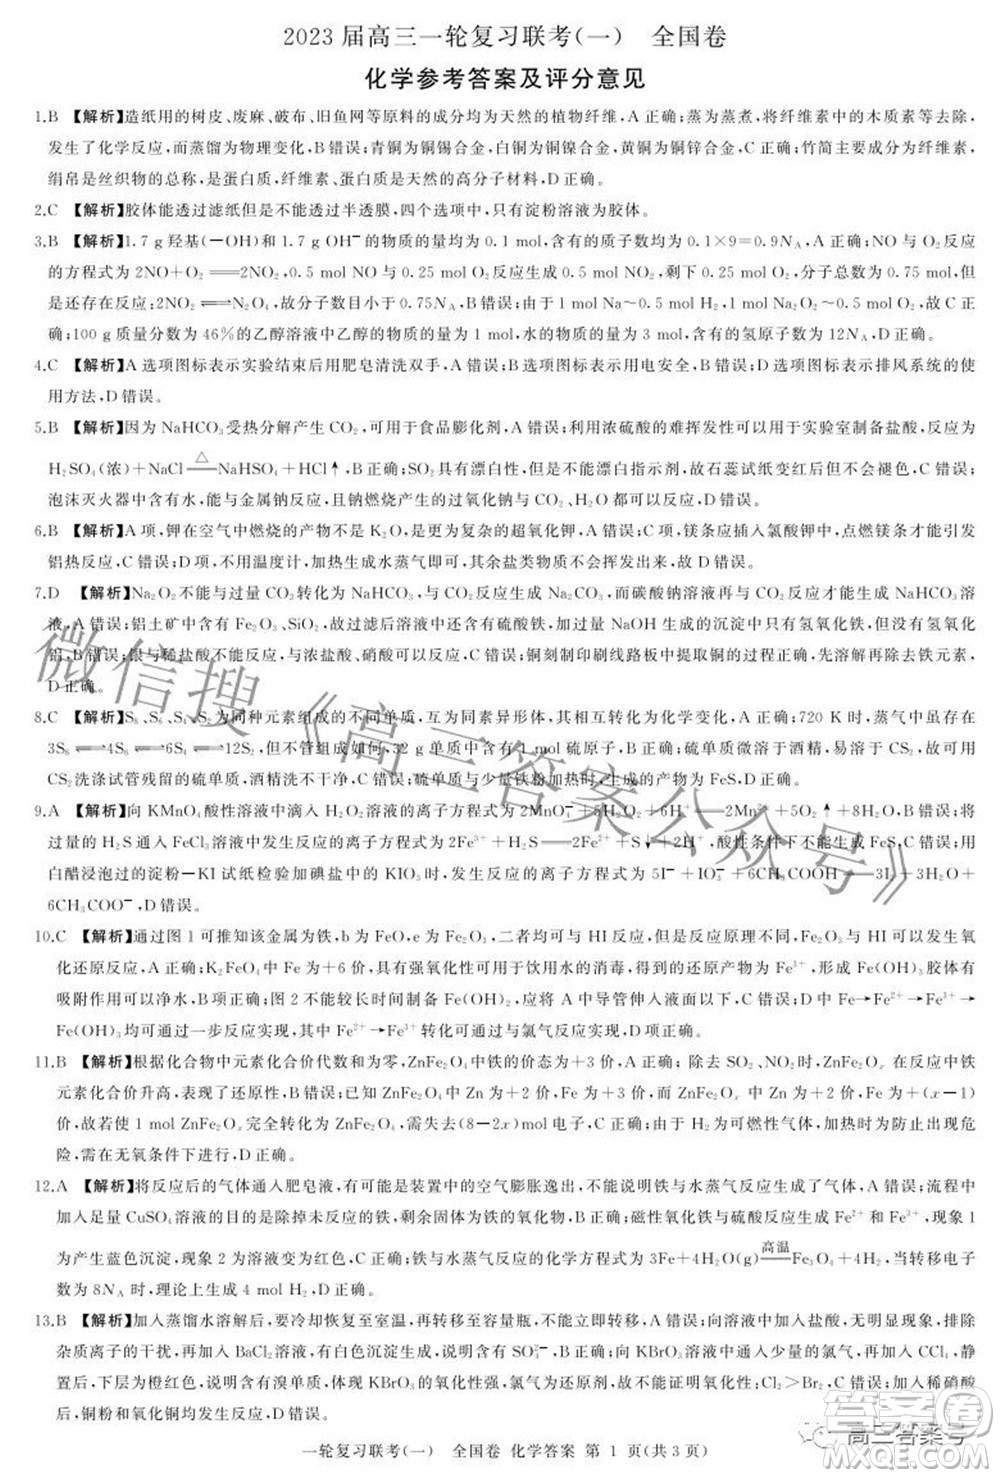 2023届高三一轮复习联考(一)　全国卷
化学参考答案及评分意见
1.B 【解析】造纸用的树皮、废麻、破布、旧鱼网等原料的成分均为天然的植物纤维,A正确;蒸为蒸煮,将纤维素中的木素等去除,
发生了化学反应,而蒸馏为物理变化,B错误;青铜为铜锡合金,白铜为铜镍合金,黄铜为铜锌合金,C正确;竹简主要成分为纤维素,
绢帛是丝织物的总称,是蛋白质,纤维素、蛋白质是天然的高分子材料,D正确。
2.C 【解析】胶体能透过滤纸但是不能透过半透膜,四个选项中,只有淀粉溶液为胶体。
3.B 【解析】1.7 g羟基(—OH)和1.7 g OH⁻的物质的量均为0.1 mol,含有的质子数均为0.1×9=0.9N_A,A正确;NO与O₂反应
的方程式为2NO+O₂══2NO₂,0.5 mol NO与0.25 mol O₂反应生成0.5 mol NO₂,剩下0.25 mol O₂,分子总数为0.75 mol,但
是还存在反应:2NO₂⇌N₂O₄,故分子数目小于0.75N_A,B错误;由于1 mol Na～0.5 mol H₂,1 mol Na₂O₂～0.5 mol O₂,故C正
确;100 g质量分数为46%的乙醇溶液中乙醇的物质的量为1 mol,水的物质的量为3 mol,含有的氢原子数为12N_A,D正确。
4.C 【解析】A选项图标表示实验结束后用肥皂清洗双手,A错误;B选项图标表示用电安全,B错误;D选项图标表示排风系统的使
用方法,D错误。
5.B 【解析】因为NaHCO₃受热分解产生CO₂,可用于食品膨化剂,A错误;利用浓硫酸的难挥发性可以用于实验室制备盐酸,反应为
H₂SO₄(浓)+NaCl═△═NaHSO₄+HCl↑,B正确;SO₂具有漂白性,但是不能漂白指示剂,故石蕊试纸变红但不会褪色,C错误;
泡沫灭火器中含有水,能与金属钠反应,且钠燃烧产生的过氧化钠与CO₂、H₂O都可以反应,D错误。
6.B 【解析】A项,钾在空气中燃烧的产物不是K₂O,是更为复杂的超氧化钾,A错误;C项,镁条应插入氯酸钾中,点燃镁条才能引发
铝热反应,C错误;D项,不用温度计,加热生成水蒸气即可,其余盐类物质不会挥发出来,故D错误。
7.D 【解析】Na₂O₂不能与过量CO₂转化为NaHCO₃,与CO₂反应生成Na₂CO₃,而碳酸钠溶液再与CO₂反应才能生成NaHCO₃溶
液,A错误;铝土矿中含有Fe₂O₃、SiO₂,故过滤后溶液中还含有硫酸铁,加过量NaOH生成的沉淀中只有氢氧化铁,但没有氢氧化
铝,B错误;银与稀盐酸不能反应,与浓盐酸、硝酸可以反应,C错误;铜刻制印刷线路板中提取铜的流程正确,先溶解再除去铁元素,
D正确。
8.C 【解析】S₈、S₆、S₄、S₂为同种元素组成的不同单质,互为同素异形体,其相互转化为化学变化,A正确;720 K时,蒸气中虽存在
3S₈⇌4S₆⇌6S₄⇌12S₂,但不管组成如何,32 g单质中都含有1 mol硫原子,B正确;硫单质微溶于酒精,易溶于CS₂,故可用
CS₂洗涤试管残留的硫单质,酒精洗不干净,C错误;硫单质与少量铁粉加热时,生成的产物为FeS,D正确。
9.A 【解析】向KMnO₄酸性溶液中滴入H₂O₂溶液的离子方程式为2MnO₄⁻+5H₂O₂+6H⁺══2Mn²⁺+5O₂↑+8H₂O,B错误;将
过量的H₂S通入FeCl₃溶液中发生反应的离子方程式为2Fe³⁺+H₂S══2Fe²⁺+S↓+2H⁺,酸性条件下不能生成FeS,C错误;用
白醋浸泡过的淀粉—KI试纸检验加碘盐中的KIO₃时,发生反应的离子方程式为5I⁻+IO₃⁻+6CH₃COOH══3I₂+3H₂O+
6CH₃COO⁻,D错误。
10.C 【解析】通过图1可推知该金属为铁,b为FeO,e为Fe₂O₃,二者均与HI反应,但是反应原理不同,Fe₂O₃与HI可以发生氧
化还原反应,A正确;K₂FeO₄中Fe为+6价,具有强氧化性可用于饮用水的消毒,得到的还原产物为Fe³⁺,形成Fe(OH)₃胶体有
吸附作用可以净水,B正确;图2不能较长时间制备Fe(OH)₂,应将A中导管伸入液面以下,C错误;D中Fe→Fe²⁺→Fe³⁺→
Fe(OH)₃均可通过一步反应实现,其中Fe²⁺→Fe³⁺转化可通过与氯气反应实现,D项正确。
11.B 【解析】根据化合物中元素化合价代数和为零,ZnFe₂O₄中铁的价态为+3价,A正确;除去SO₂、NO₂时,ZnFe₂Oₓ在反应中铁
元素化合价升高,表现了还原性,B错误;ZnFe₂O₄中Zn为+2价,Fe为+3价,ZnFe₂Oₓ中Zn为+2价,Fe为+(x−1)
价,故若使1 mol ZnFe₂Oₓ完全转化为ZnFe₂O₄,需失去(8−2x)mol电子,C正确;由于H₂为可燃性气体,加热时可能出现危
险,需在无氧条件下进行,D正确。
12.A 【解析】将反应后的气体通入肥皂液,有可能是装置中的空气膨胀逸出,不能说明铁与水蒸气反应一定生成了气体,A错误;流程中
加入足量CuSO₄溶液的目的是除掉未反应的铁,剩余固体为铁的氧化物,B正确;磁性氧化铁与硫酸反应生成Fe²⁺和Fe³⁺,现象1
为产生蓝色沉淀,现象2为溶液变为红色,C正确;铁与水蒸气反应的化学方程式为3Fe+4H₂O(g)═高温═Fe₃O₄+4H₂,当转移电子
数为8N_A时,理论上生成4 mol H₂,D正确。
13.B 【解析】加入蒸馏水溶解后,要冷却恢复至室温,再转移至容量瓶中,不能直接转移,A错误;向溶液中加入盐酸,无现象,排除
杂质离子的干扰,再加入BaCl₂溶液,有白色沉淀生成,说明含有SO₄²⁻,B正确;向KBrO₃溶液中通入少量的氯气,再加入CCl₄,静
置后,下层为橙红色,说明含有溴单质,但KBrO₃的氧化性强于氯气,氯气为还原剂,不能证明氧化性:Cl₂＞Br₂,C错误;加入稀硝酸
后,铜粉和氧化铜均发生反应,D错误。
一轮复习联考(一)　全国卷　化学答案　第 1 页(共 3 页)
微信搜《高三答案公众号》
高三答案号
答案圈
MXQE.COM